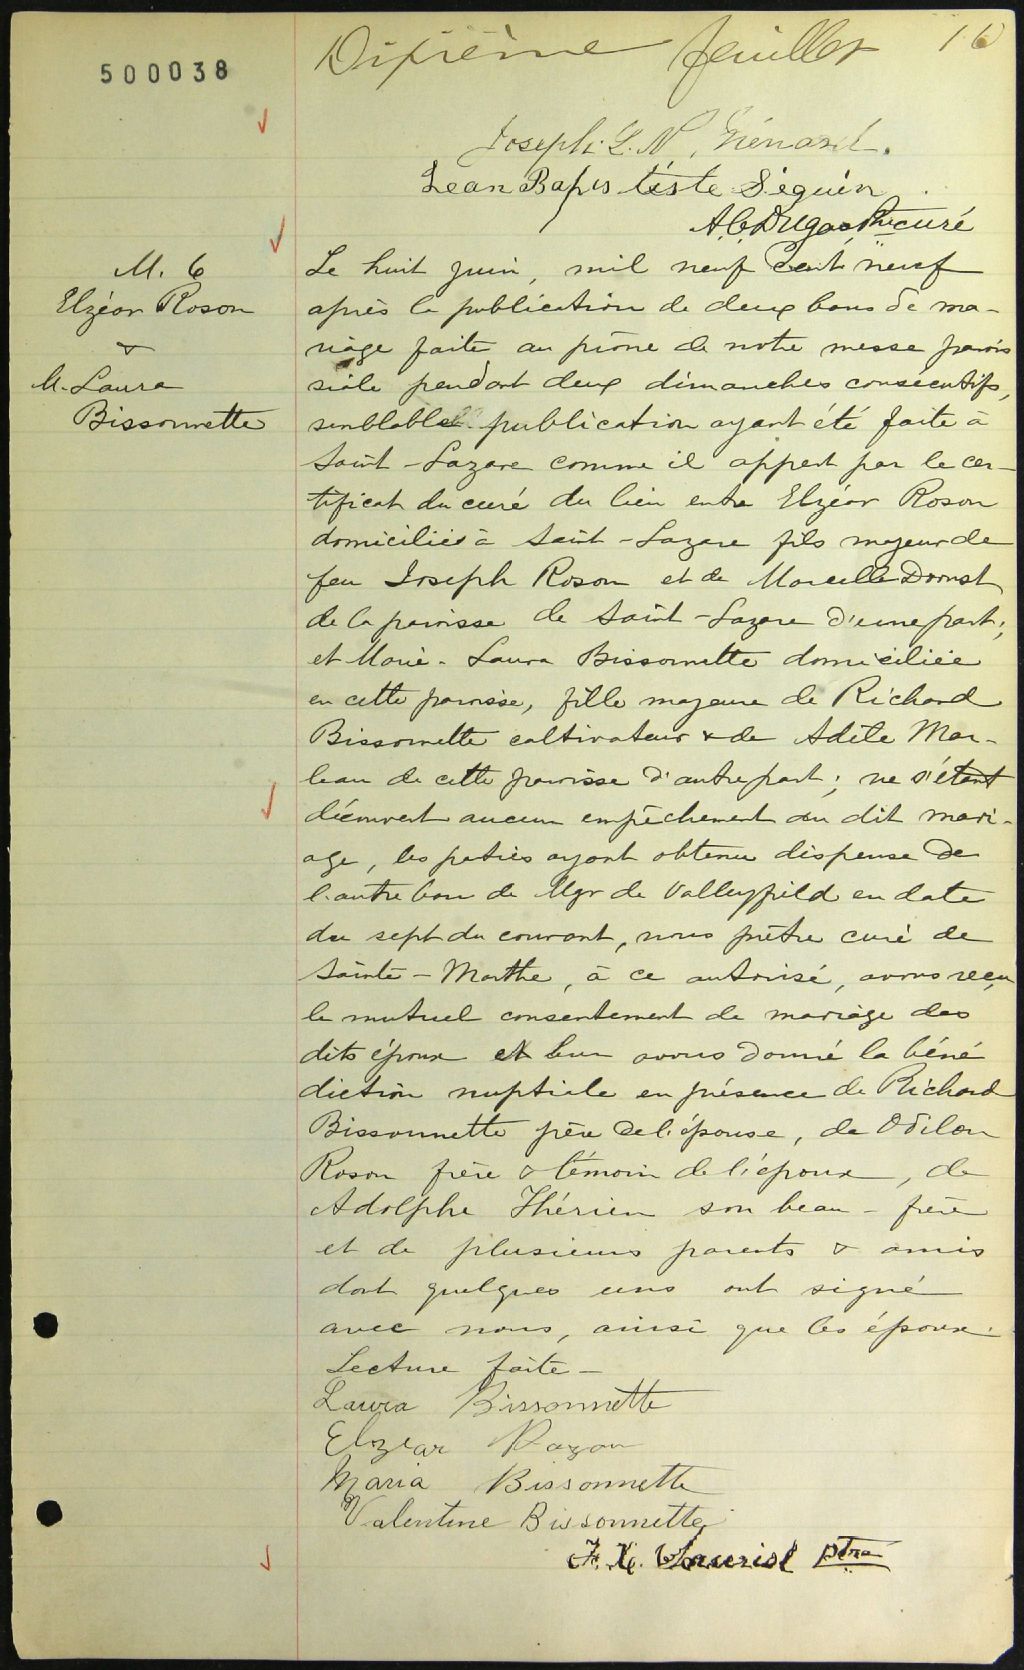 500038
Dixième feuillet 10
Joseph L. N. Ménard.
Jean Bapis tiste Séguin
A. C. Dugas Ptre curé
M. 6
Elzéar Roson
&
M. Laura
Bissonnette
Le huit juin, mil neuf cent neuf
après la publication de deux bans de ma-
riage faite au prône de notre messe parois
siale pendant deux dimanches consécutifs,
semblable publication ayant été faite à
Saint-Lazare comme il appert par le cer-
tificat du curé du lieu entre Elzéar Roson
domicilié à Saint-Lazare fils majeur de
feu Joseph Roson et de Marcelle Doust
de la paroisse de Saint-Lazare d'une part;
et Marie-Laura Bissonnette domiciliée
en cette paroisse, fille majeure de Richard
Bissonnette cultivateur & de Adèle Mar-
leau de cette paroisse d'autre part; ne s'étant
découvert aucun empêchement au dit mari-
age, les parties ayant obtenu dispense de
l'autre ban de Mgr de Valleyfield en date
du sept du courant, nous prêtre curé de
Sainte-Marthe, à ce autorisé, avons reçu
le mutuel consentement de mariage des
dits époux et leur avons donné la béné
diction nuptiale en présence de Richard
Bissonnette père de l'épouse, de Odilon
Roson frère & témoin de l'époux, de
Adolphe Thérien son beau-frère
et de plusieurs parents & amis
dont quelques uns ont signé
avec nous, ainsi que les époux.
Lecture faite-
Laura Bissonnette
Elzear Rozon
Maria Bissonnette
Valentine Bissonnette
F. X. ptre